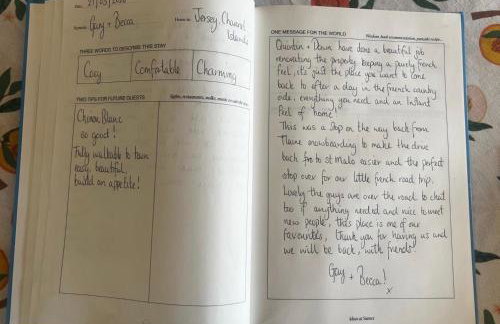 Date 21/03/2022
Name(s) Gary + Becca
Home in Jersey, Channel
Islands
THREE WORDS TO DESCRIBE THIS STAY
Cosy
Comfortable
Charming
TWO TIPS FOR FUTURE GUESTS
Chinon Blanc
so good!
Fully walkable to town
easy, beautiful,
build an appetite!
ONE MESSAGE FOR THE WORLD
Quentin + Dawn have done a beautiful job
renovating the property keeping a purely French
feel, its just the place you want to come
back to after a day in the french country
side, everything you need and an instant
feel of "home"
This was a stop on the way back from
snowboarding to make the drive
back to St Malo easier and the perfect
stop over for our little french road trip.
Lovely the guys are over the road to chat
too if anything needed and nice to meet
new people, this place is one of our
favourites, thank you for having us and
we will be back, with friends!
Gary + Becca!
x